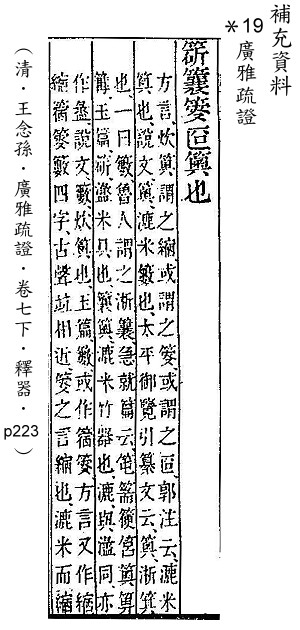 補充資料
*19 廣雅疏證
䈹匴䉛也
方言炊䉛謂之縮或謂之䈹或謂之匴郭注云漉米
䉛也說文䉛漉米籔也太平御覽引纂文云䉛淅箕
也一曰籔魯人謂之淅急就篇云篅箯筥䉛箅
篝玉篇米具也䉛漉米竹器也漉與盝同亦
作盝說文籔炊䉛也玉篇籔或作䈹方言又作縮
縮䈹籔四字古聲竝相近䈹之言縮也漉米而縮
（清．王念孫．廣雅疏證．卷七下．釋器．p223）